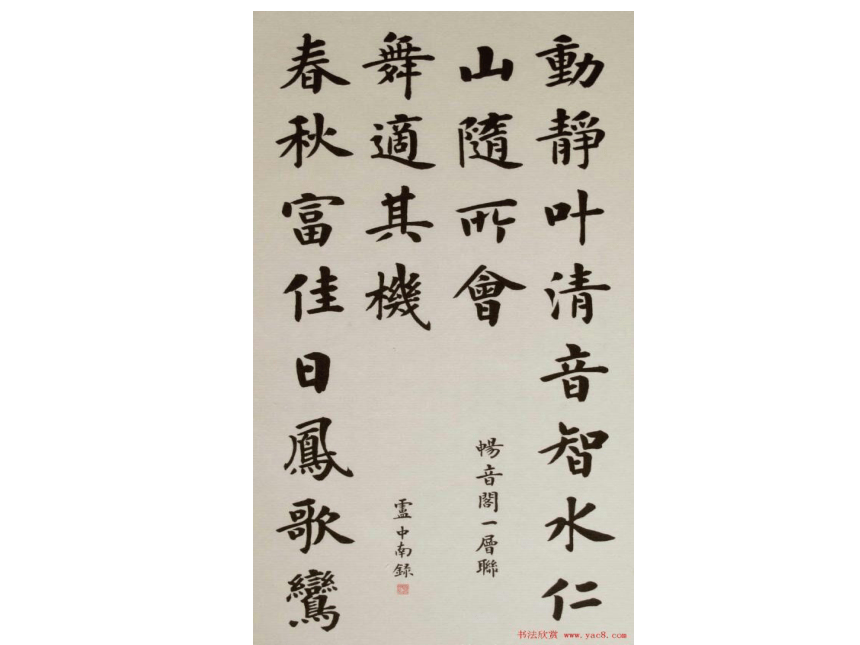 動靜叶清音智水仁
山隨所會
暢音閣一層聯
春秋富佳日鳳歌鸞
舞適其機
盧中南錄
书法欣赏 www.yac8.com